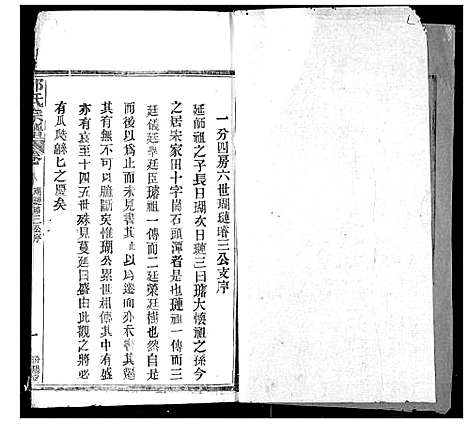 一分四房六世瑚璉璿三公支序
延師祖之子長曰瑚次曰璉三曰璿大懷祖之孫今
之居宋家田十字崗石頭潭者是也璉祖一傳而三
廷儀廷舉廷臣璿祖一傳而二廷榮廷樁也然自是
而後以為止此而未見書其以為後遂無傳焉
其有無不可臆斷矣惟瑚公累世相傳其中有盛
亦有衰至十四五世殊見蔓延日盛由此觀之將必
有瓜瓞緜七之慶矣
氏族譜
瑚璉璿三公序
一